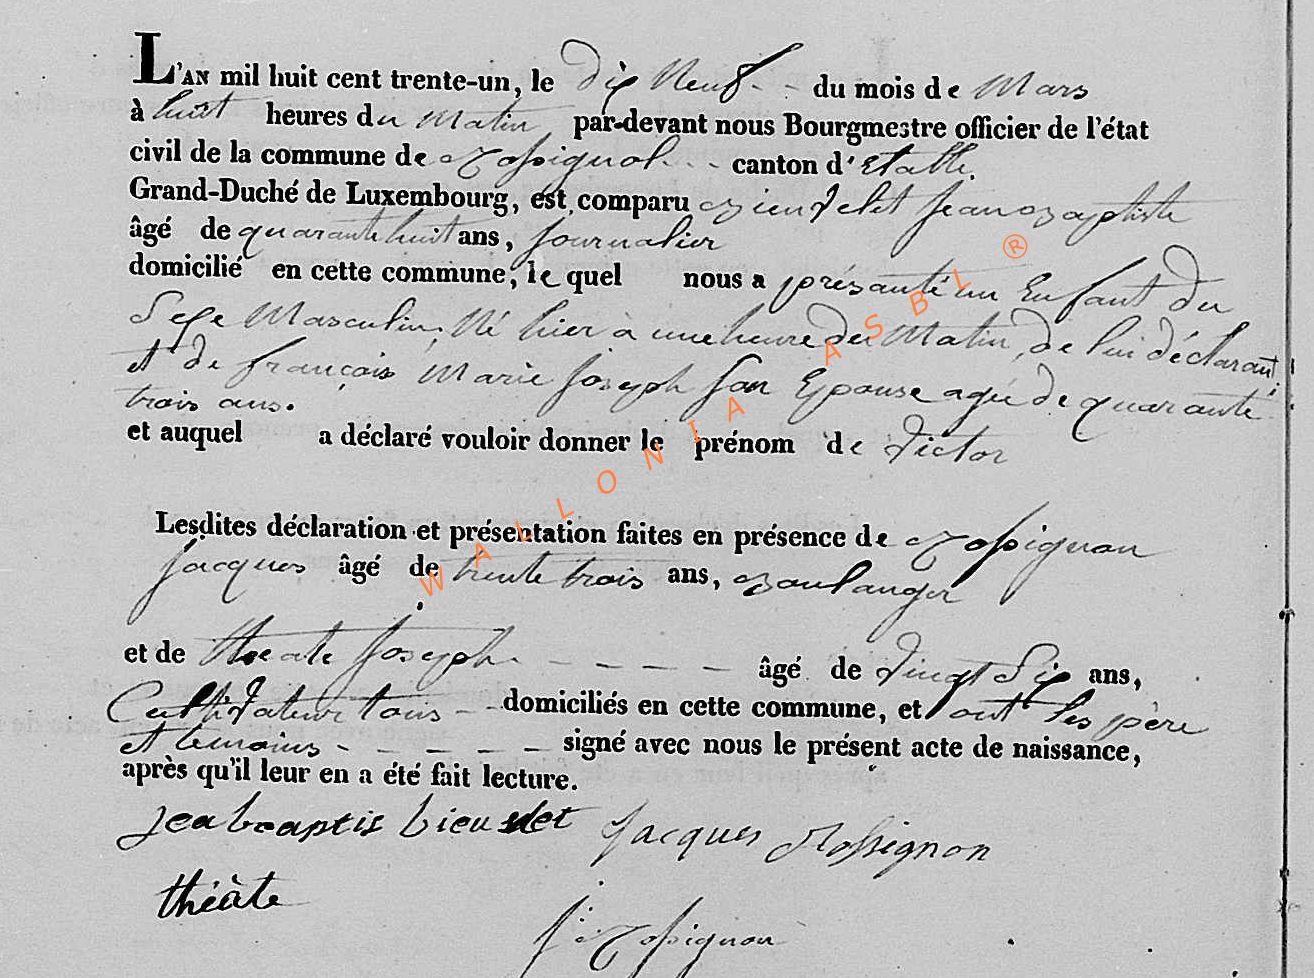 L'AN mil huit cent trente-un, le dix Neuf du mois de Mars
à huit heures du Matin par-devant nous Bourgmestre officier de l'état
civil de la commune de Rossignol canton d'Etalle.
Grand-Duché de Luxembourg, est comparu Bienvelet Jean Baptiste
âgé de quarante huit ans, Journalier
domicilié en cette commune, le quel nous a présanté un Enfant du
Sexe Masculin, Né hier à une heure du Matin, de lui déclarant
et de françois Marie Joseph son Epouse agée de quarante
trois ans.
et auquel a déclaré vouloir donner le prénom de Victor
Lesdites déclaration et présentation faites en présence de Rossignon
Jacques âgé de trente trois ans, Boulanger
et de théate Joseph âgé de vingt Six ans,
Cultivateur tous domiciliés en cette commune, et ont les père
et temoins signé avec nous le présent acte de naissance,
après qu'il leur en a été fait lecture.
Jeabaptis bieuvlet Jacques Rossignon
théâte
Rossignon
WALLONIA ASBL ®